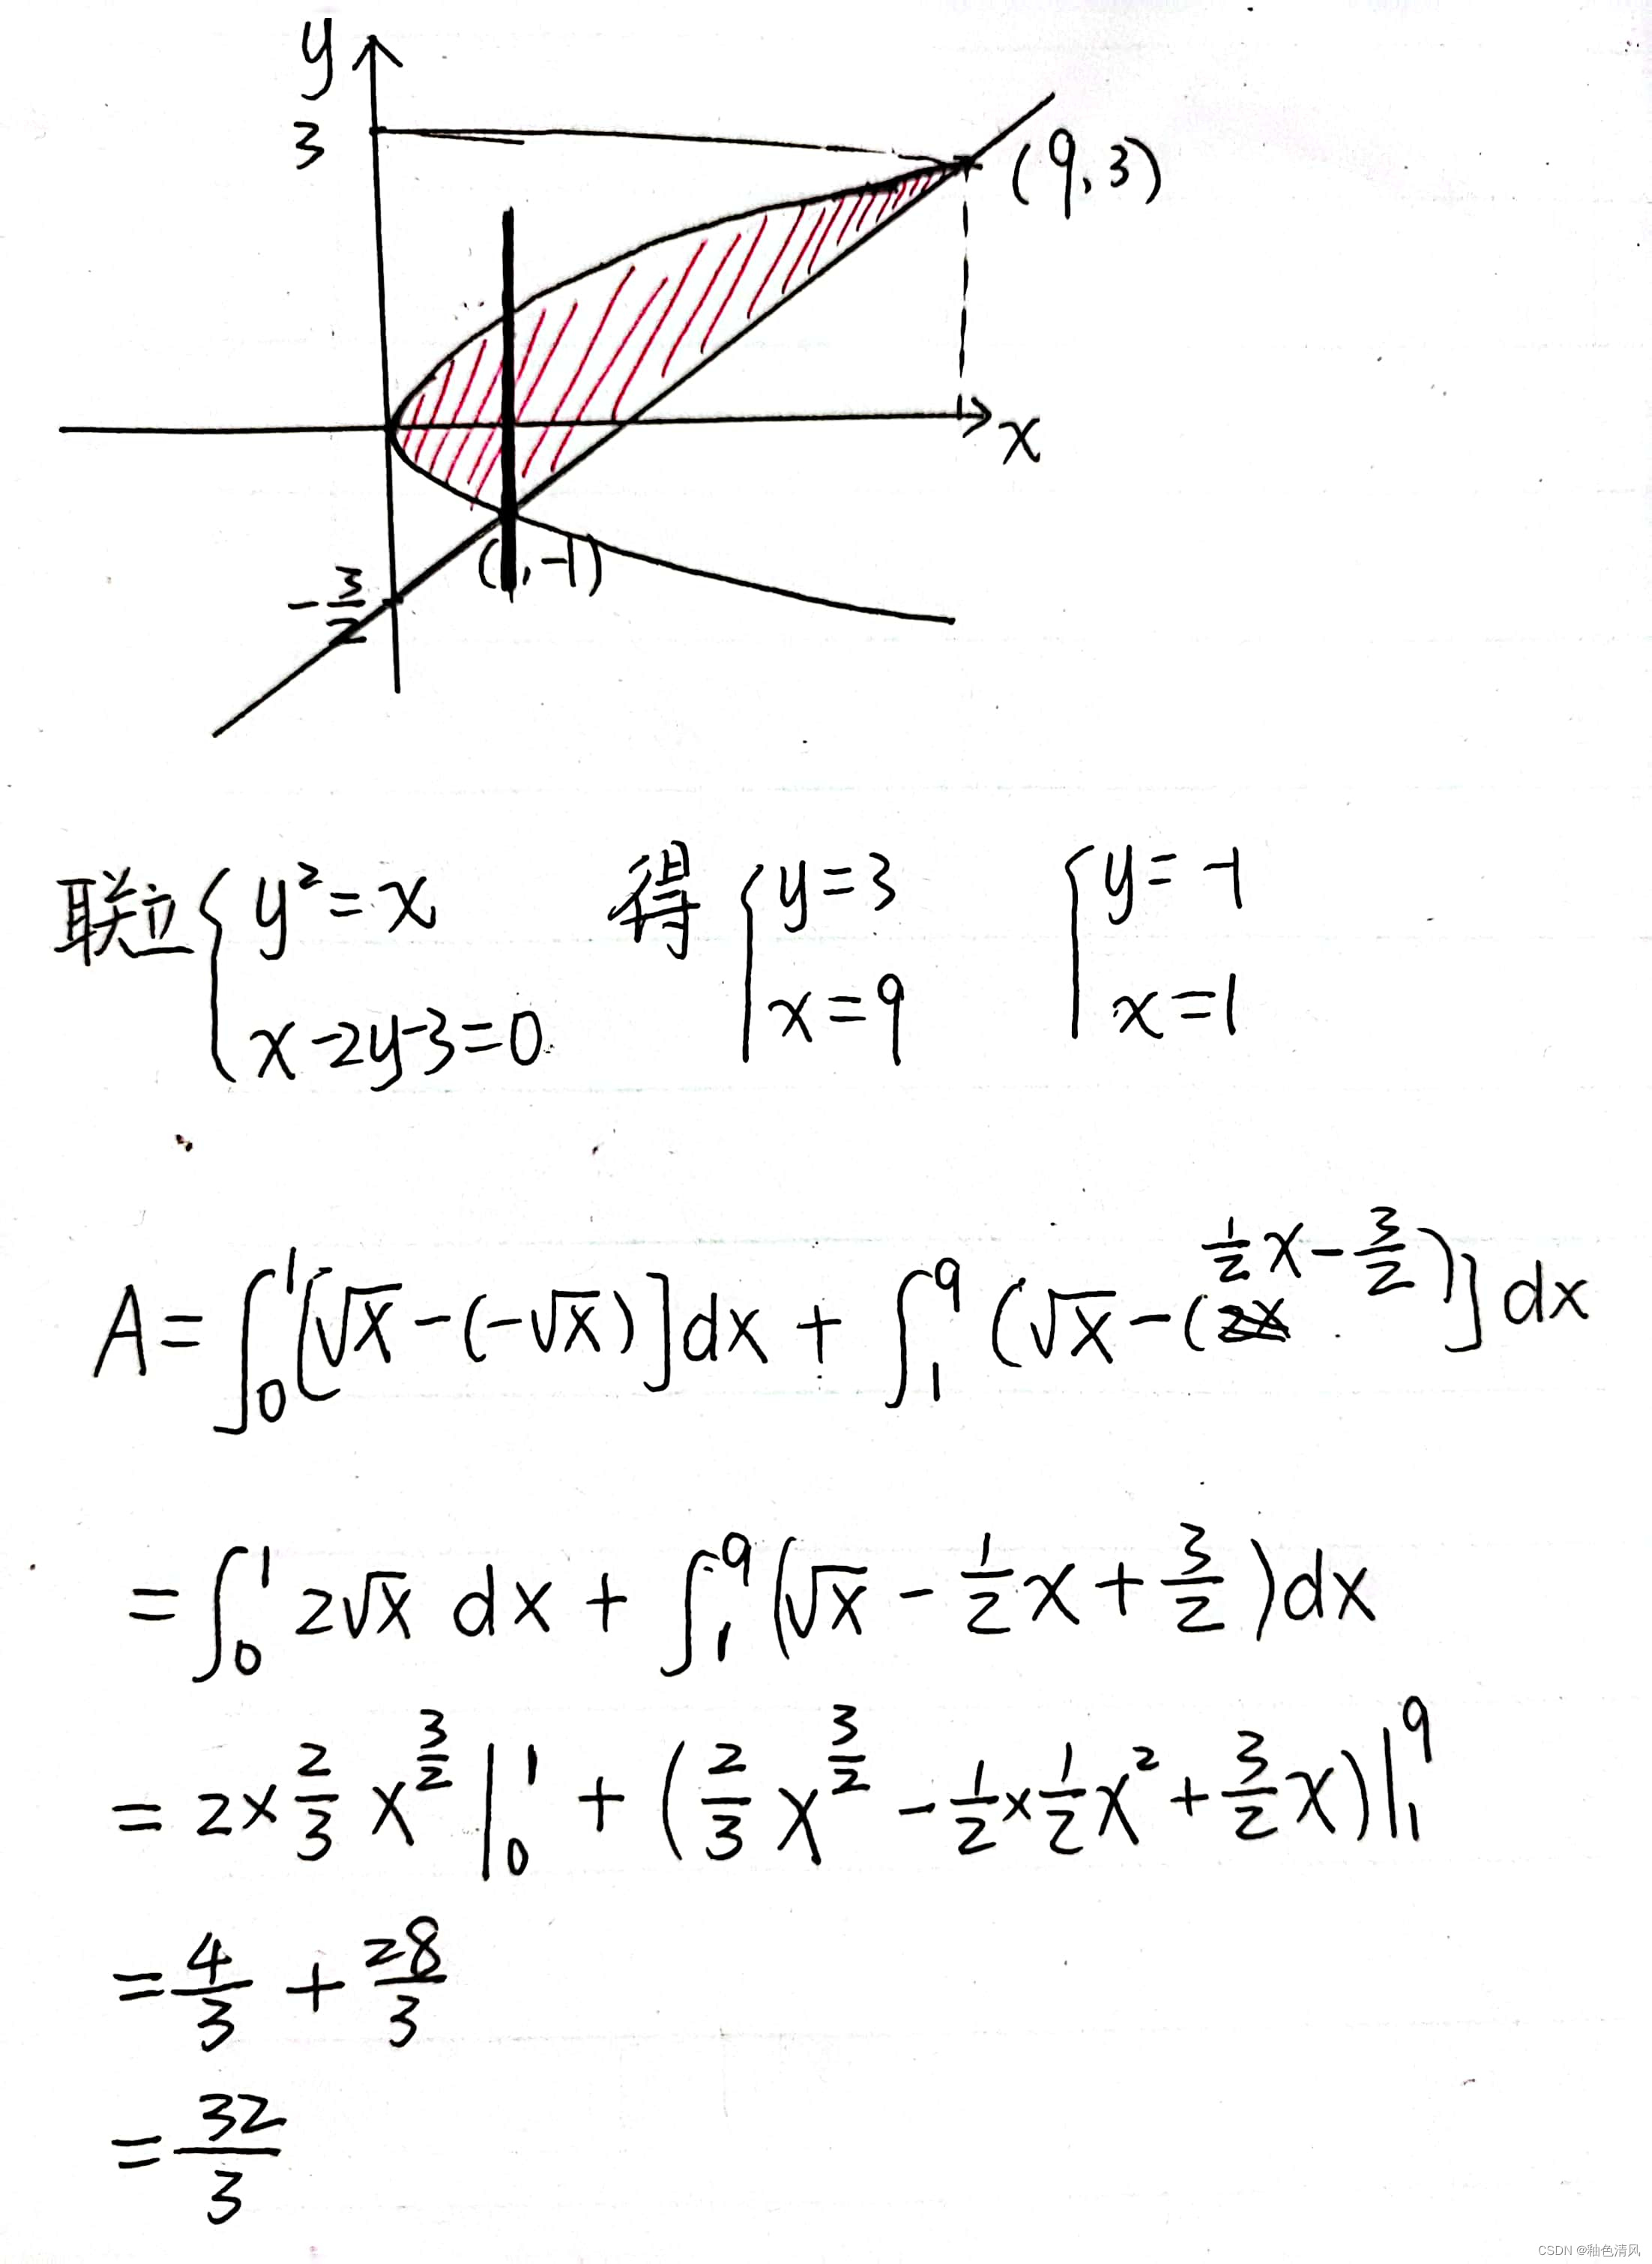 y
3
(9,3)
x
(1,-1)
-3/2
联立 { y²=x 得 { y=3 { y=-1
x-2y-3=0 x=9 x=1
A=∫₀¹[√x-(-√x)]dx+∫₁⁹(√x-(½x-3/2)]dx
=∫₀¹2√x dx+∫₁⁹(√x-½x+3/2)dx
=2×2/3 x^(3/2)|₀¹+(2/3 x^(3/2)-½×½x²+3/2 x)|₁⁹
=4/3+28/3
=32/3
CSDN @釉色清风